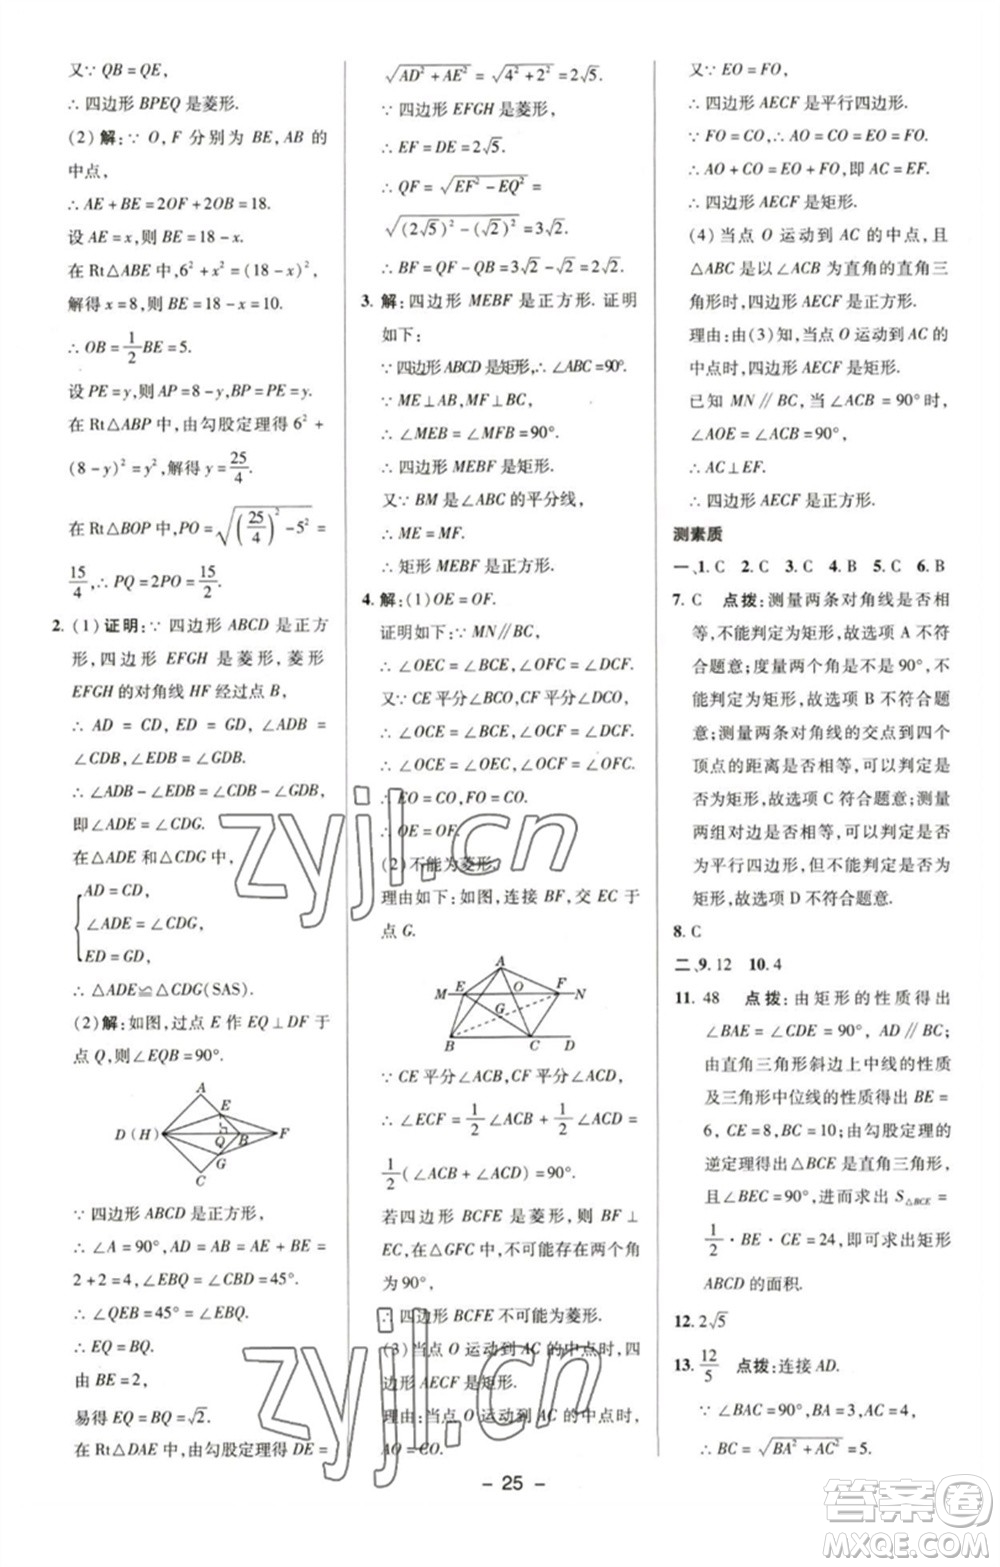 又∵ QB = QE，
∴ 四边形 BPEQ 是菱形.
(2) 解：∵ O，F 分别为 BE，AB 的
中点，
∴ AE + BE = 2OF + 2OB = 18.
设 AE = x，则 BE = 18 - x.
在 Rt△ABE 中，6² + x² = (18 - x)²，
解得 x = 8，BE = 18 - x = 10.
∴ OB = 1/2 BE = 5.
设 PE = y，则 AP = 8 - y，BP = PE = y.
在 Rt△ABP 中，由勾股定理得 6² +
(8 - y)² = y²，解得 y = 25/4.
在 Rt△BOP 中，PO = √((25/4)² - 5²) =
15/4，∴ PQ = 2PO = 15/2.
2. (1) 证明：∵ 四边形 ABCD 是正方
形，四边形 EFGH 是菱形，菱形
EFGH 的对角线 HF 经过点 B，
∴ AD = CD，ED = GD，∠ADB =
∠CDB，∠EDB = ∠GDB.
∴ ∠ADB - ∠EDB = ∠CDB - ∠GDB，
即∠ADE = ∠CDG.
在△ADE 和△CDG 中，
AD = CD，
∠ADE = ∠CDG，
ED = GD，
∴ △ADE≌△CDG(SAS).
(2) 解：如图，过点 E 作 EQ⊥DF 于
点 Q，则∠EQB = 90°.
A
E
D(H)
Q B F
G
C
∵ 四边形 ABCD 是正方形，
∴ ∠A = 90°，AD = AB = AE + EB =
2 + 2 = 4，∠EBQ = ∠CBD = 45°.
∴ ∠QEB = 45° = ∠EBQ.
∴ EQ = BQ.
由 BE = 2，
易得 EQ = BQ = √2.
在 Rt△DAE 中，由勾股定理得 DE =
√(AD² + AE²) = √(4² + 2²) = 2√5.
∵ 四边形 EFGH 是菱形，
∴ EF = DE = 2√5.
∴ QF = √(EF² - EQ²) =
√((2√5)² - (√2)²) = 3√2.
∴ BF = QF - QB = 3√2 - √2 = 2√2.
3. 解：四边形 MEBF 是正方形. 证明
如下：
∵ 四边形 ABCD 是矩形，∴ ∠ABC = 90°.
∵ ME⊥AB，MF⊥BC，
∴ ∠MEB = ∠MFB = 90°.
∴ 四边形 MEBF 是矩形.
又∵ BM 是∠ABC 的平分线，
∴ ME = MF.
∴ 矩形 MEBF 是正方形.
4. 解：(1) OE = OF.
证明如下：∵ MN∥BC，
∴ ∠OEC = ∠BCE，∠OFC = ∠DCF.
又∵ CE 平分∠BCO，CF 平分∠DCO，
∴ ∠OCE = ∠BCE，∠OCF = ∠DCF.
∴ ∠OCE = ∠OEC，∠OCF = ∠OFC.
∴ EO = CO，FO = CO.
∴ OE = OF.
(2) 不能为菱形.
理由如下：如图，连接 BF，交 CE 于
点 G.
A
M E O F N
G
B C D
∵ CE 平分∠ACB，CF 平分∠ACD，
∴ ∠ECF = 1/2∠ACB + 1/2∠ACD =
1/2(∠ACB + ∠ACD) = 90°.
若四边形 BCFE 是菱形，则 BF⊥
EC，在△GFC 中，不可能存在两个角
为 90°，
∴ 四边形 BCFE 不可能为菱形.
(3) 当点 O 运动到 AC 的中点时，四
边形 AECF 是矩形.
理由：当点 O 运动到 AC 的中点时，
AO = CO.
又∵ EO = FO，
∴ 四边形 AECF 是平行四边形.
∵ FO = CO，∴ AO = CO = EO = FO.
∴ AO + CO = EO + FO，即 AC = EF.
∴ 四边形 AECF 是矩形.
(4) 当点 O 运动到 AC 的中点，且
△ABC 是以∠ACB 为直角的直角三
角形时，四边形 AECF 是正方形.
理由：由(3)知，当点 O 运动到 AC 的
中点时，四边形 AECF 是矩形.
已知 MN∥BC，当∠ACB = 90°时，
∠AOE = ∠ACB = 90°，
∴ AC⊥EF.
∴ 四边形 AECF 是正方形.
测素质
一、1. C 2. C 3. C 4. B 5. C 6. B
7. C 点拨：测量两条对角线是否相
等，不能判定为矩形，故选项 A 不符
合题意；度量两个角是不是 90°，不
能判定为矩形，故选项 B 不符合题
意；测量两条对角线的交点到四个
顶点的距离是否相等，可以判定是
否为矩形，故选项 C 符合题意；测量
两组对边是否相等，可以判定是否
为平行四边形，但不能判定是否为
矩形，故选项 D 不符合题意.
8. C
二、9. 12 10. 4
11. 48 点拨：由矩形的性质得出
∠BAE = ∠CDE = 90°，AD∥BC；
由直角三角形斜边上中线的性质
及三角形中位线的性质求出 BE =
6，CE = 8，BC = 10；由勾股定理的
逆定理得出△BCE 是直角三角形，
且∠BEC = 90°，进而求出 S△BCE =
1/2 · BE · CE = 24，即可求出矩形
ABCD 的面积.
12. 2√5
13. 12/5 点拨：连接 AD.
∵ ∠BAC = 90°，BA = 3，AC = 4，
∴ BC = √(BA² + AC²) = 5.
- 25 -
zyjl.cn
zyjl.cn
答案圈
MXQE.COM